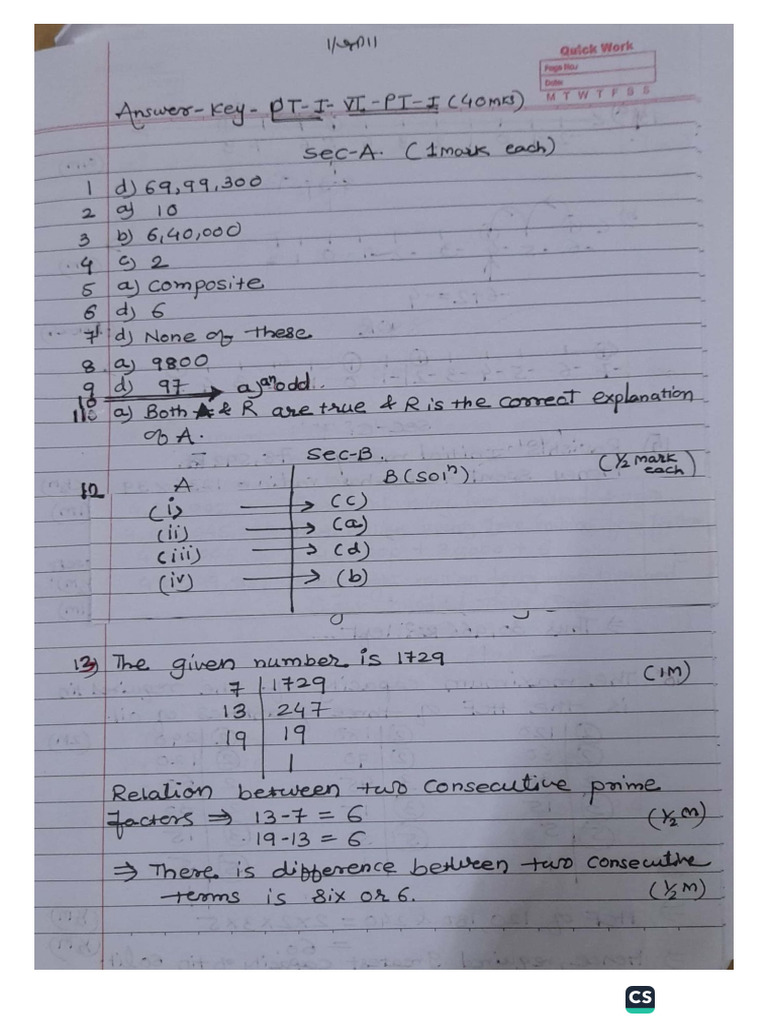 Quick Work
Page No.:
Date:
M T W T F S S
Answer-Key - PT-I- VI-PT-I (40mks)
Sec-A. (1mark each)
1 d) 69,99,300
2 a) 10
3 b) 6,40,000
4 c) 2
5 a) composite
6 d) 6
7 d) None of these
8 a) 9800
9 d) 97
10 a) an odd.
11 a) Both A & R are true & R is the correct explanation
of A.
Sec-B.
(1/2 mark each)
12 A B (Solⁿ)
(i) → (c)
(ii) → (a)
(iii) → (d)
(iv) → (b)
13) The given number is 1729 (1M)
7 | 1729
13 | 247
19 | 19
1
Relation between two consecutive prime
factors ⇒ 13-7 = 6 (1/2 M)
19-13 = 6
⇒ There is difference between two consecutive
terms is six or 6. (1/2 M)
CS